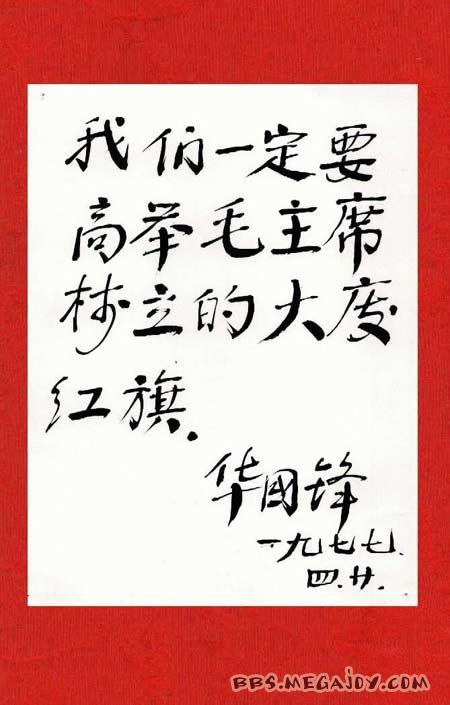 我们一定要
高举毛主席
树立的大庆
红旗.
华国锋
一九七七.
四.廿.
BBS.MEGAJOY.COM